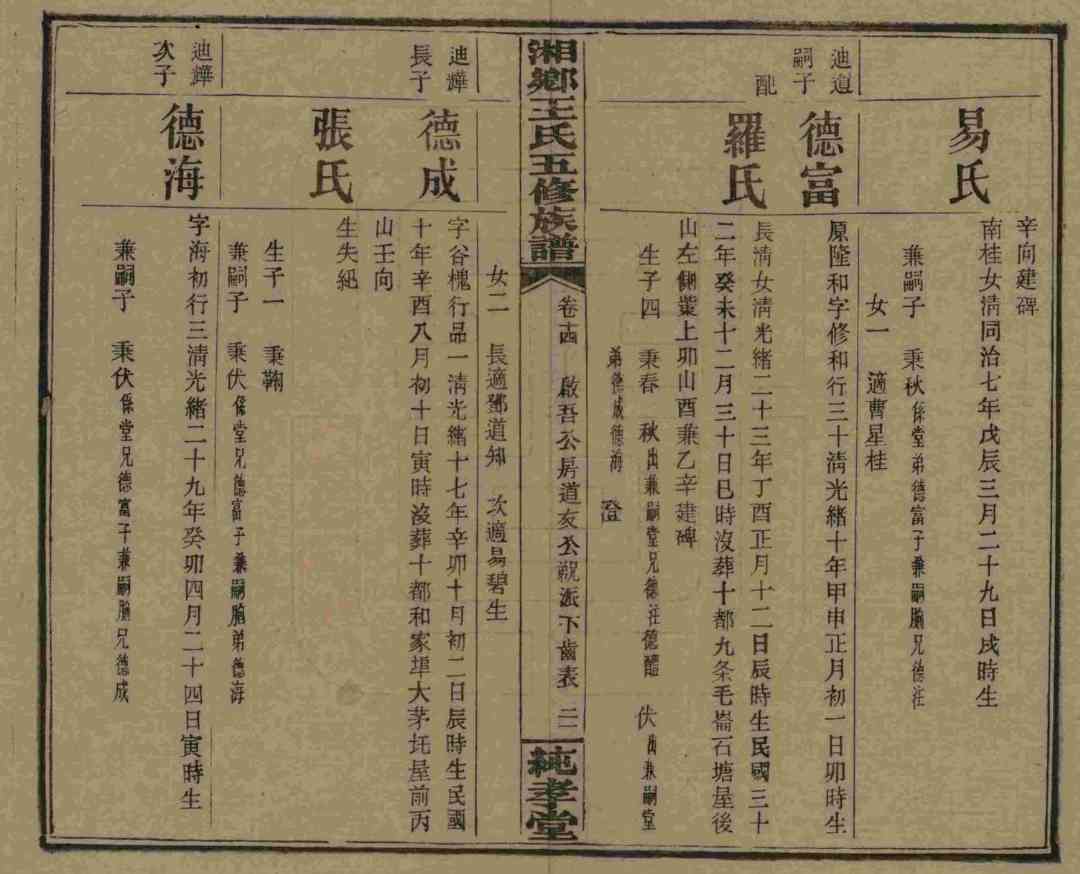 辛向建碑
易氏
南桂女清同治七年戊辰三月二十九日戌時生
兼嗣子 秉秋係堂弟德富子兼嗣胞兄德注
女一 適曹星桂
迪道
嗣子
德富
原隆和字修和行三十清光緒十年甲申正月初一日卯時生
配
羅氏
長清女清光緒二十三年丁酉正月十二日辰時生民國三十
二年癸未十二月三十日巳時沒葬十都九条毛崙石塘屋後
山左側業上卯山酉兼乙辛建碑
生子四 秉春 秋出兼嗣堂兄德注德醴 伏出兼嗣堂
弟德成德海 澄
湘鄉王氏五修族譜
卷十四 啟吾公房道友公 派下齒表 三
純孝堂
女二 長適鄧道知 次適易碧生
迪鏵
長子
德成
字谷槐行品一清光緒十七年辛卯十月初二日辰時生民國
十年辛酉八月初十日寅時沒葬十都和家埠大茅坵屋前丙
山壬向
張氏
生失紀
生子一 秉鞠
兼嗣子 秉伏係堂兄德富子兼嗣胞弟德海
迪鏵
次子
德海
字海初行三清光緒二十九年癸卯四月二十四日寅時生
兼嗣子 秉伏係堂兄德富子兼嗣胞兄德成